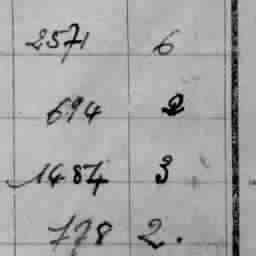 2571 6
694 2
1484 3
778 2.